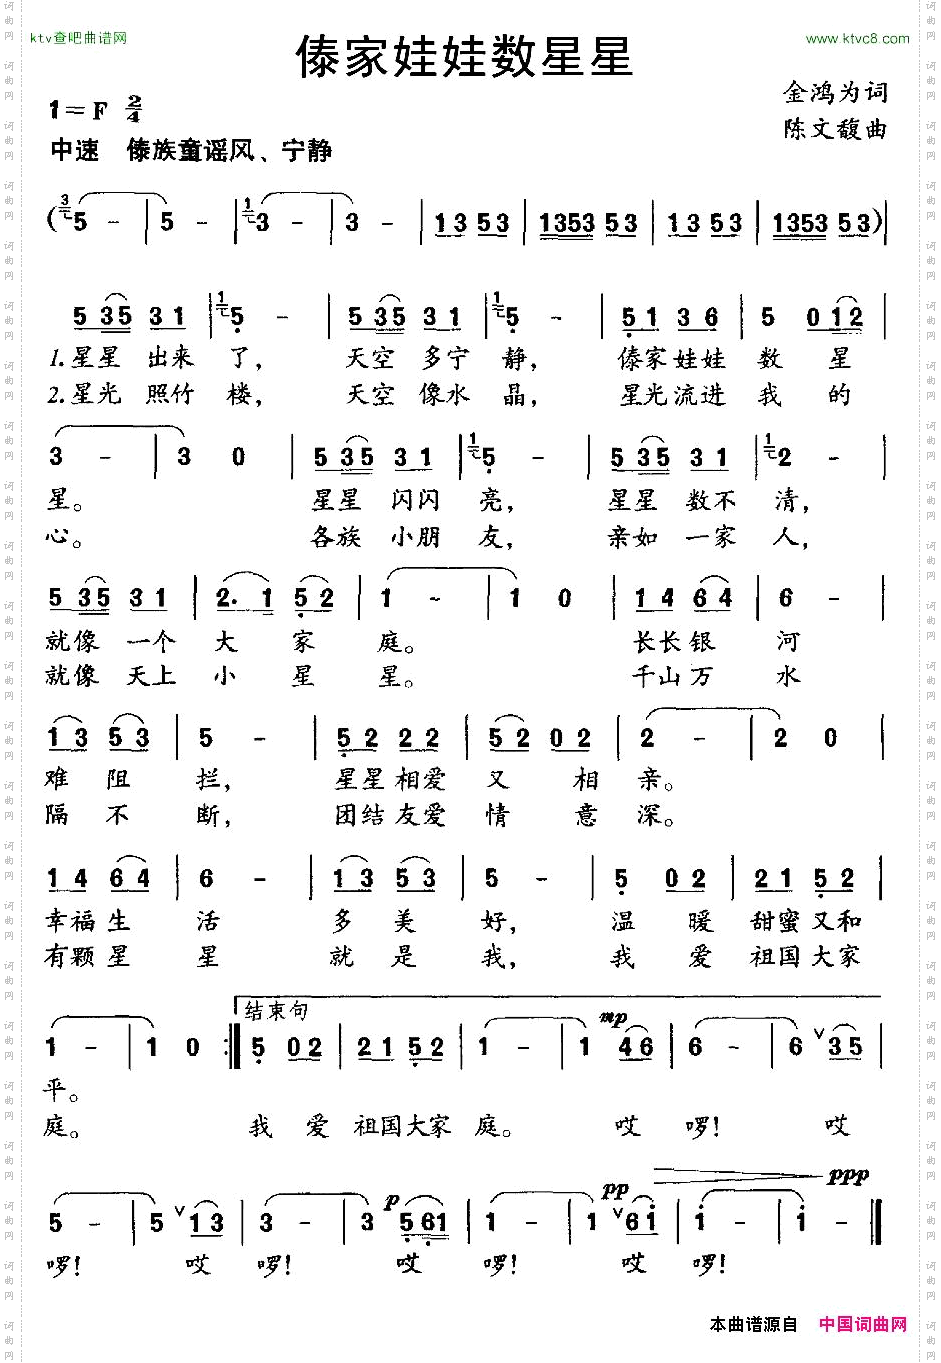 ktv查吧曲谱网 www.ktvc8.com
傣家娃娃数星星
1=F 2/4 金鸿为词
中速 傣族童谣风、宁静 陈文馥曲
( 3 5 - | 5 - | 1 3 - | 3 - | 1 3 5 3 | 1353 5 3 | 1 3 5 3 | 1353 5 3 ) |
5 35 3 1 | 1 5 - | 5 35 3 1 | 1 5 - | 5 1 3 6 | 5 0 12 |
1.星星 出来 了， 天空 多宁 静， 傣家娃娃 数 星
2.星光 照竹 楼， 天空 像水 晶， 星光流进 我 的
3 - | 3 0 | 5 35 3 1 | 1 5 - | 5 35 3 1 | 1 2 - |
星。 星星 闪闪 亮， 星星 数不 清，
心。 各族 小朋 友， 亲如 一家 人，
5 35 3 1 | 2. 1 5 2 | 1 - | 1 0 | 1 4 6 4 | 6 - |
就像 一个 大 家 庭。 长长银 河
就像 天上 小 星 星。 千山万 水
1 3 5 3 | 5 - | 5 2 2 2 | 5 2 0 2 | 2 - | 2 0 |
难 阻 拦， 星星相爱 又 相 亲。
隔 不 断， 团结友爱 情 意 深。
1 4 6 4 | 6 - | 1 3 5 3 | 5 - | 5 0 2 | 2 1 5 2 |
幸福生 活 多 美 好， 温 暖 甜蜜又和
有颗星 星 就 是 我， 我 爱 祖国大家
结束句
1 - | 1 0 :| 5 0 2 | 2 1 5 2 | 1 - | 1 mp 4 6 | 6 - | 6 ∨ 3 5 |
平。
庭。 我 爱 祖国大家 庭。 哎 啰！ 哎
5 - | 5 ∨ 1 3 | 3 - | 3 p 5 61 | 1 - | 1 pp ∨ 6 1 | 1 - | 1 - ppp ‖
啰！ 哎 啰！ 哎 啰！ 哎 啰！
本曲谱源自 中国词曲网